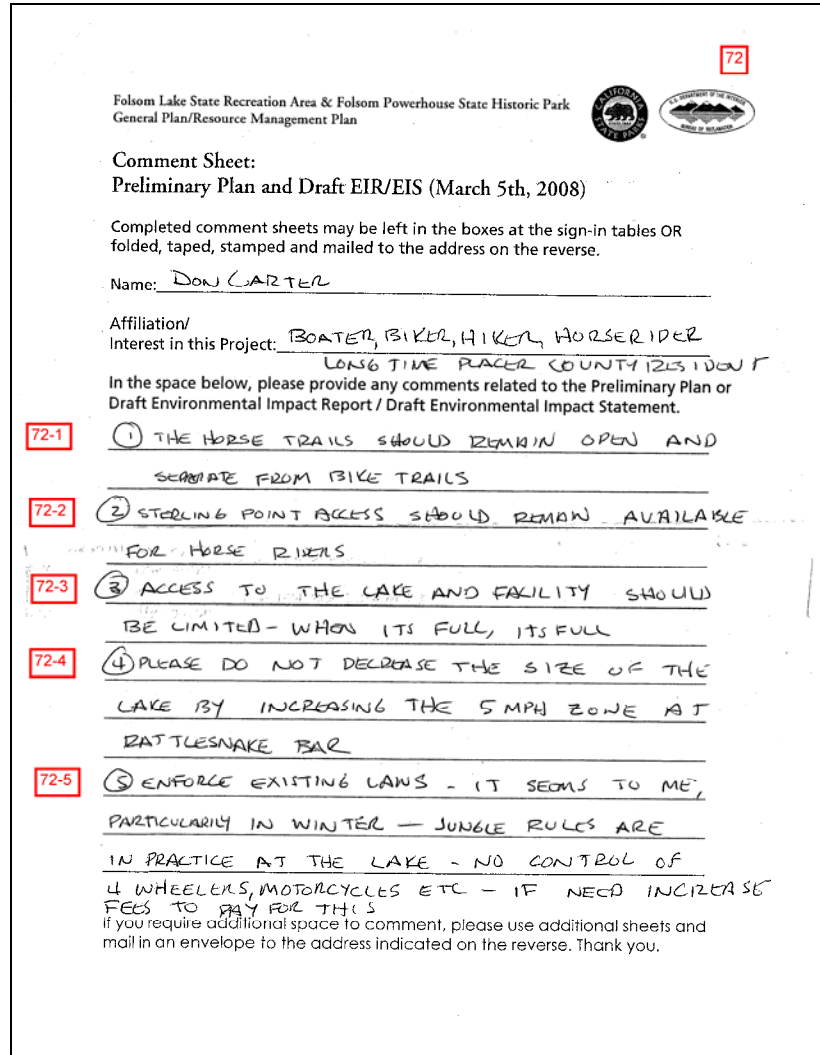 72
Folsom Lake State Recreation Area & Folsom Powerhouse State Historic Park
General Plan/Resource Management Plan
CALIFORNIA STATE PARKS
U.S. DEPARTMENT OF THE INTERIOR
BUREAU OF RECLAMATION
Comment Sheet:
Preliminary Plan and Draft EIR/EIS (March 5th, 2008)
Completed comment sheets may be left in the boxes at the sign-in tables OR
folded, taped, stamped and mailed to the address on the reverse.
Name: DON CARTER
Affiliation/
Interest in this Project: BOATER, BIKER, HIKER, HORSERIDER
LONG TIME PLACER COUNTY RESIDENT
In the space below, please provide any comments related to the Preliminary Plan or
Draft Environmental Impact Report / Draft Environmental Impact Statement.
72-1 ① THE HORSE TRAILS SHOULD REMAIN OPEN AND
SEPARATE FROM BIKE TRAILS
72-2 ② STERLING POINT ACCESS SHOULD REMAIN AVAILABLE
FOR HORSE RIDERS
72-3 ③ ACCESS TO THE LAKE AND FACILITY SHOULD
BE LIMITED - WHEN ITS FULL, ITS FULL
72-4 ④ PLEASE DO NOT DECREASE THE SIZE OF THE
LAKE BY INCREASING THE 5 MPH ZONE AT
RATTLESNAKE BAR
72-5 ⑤ ENFORCE EXISTING LAWS - IT SEEMS TO ME,
PARTICULARILY IN WINTER — JUNGLE RULES ARE
IN PRACTICE AT THE LAKE - NO CONTROL OF
4 WHEELERS, MOTORCYCLES ETC - IF NEED INCREASE
FEES TO PAY FOR THIS
If you require additional space to comment, please use additional sheets and
mail in an envelope to the address indicated on the reverse. Thank you.